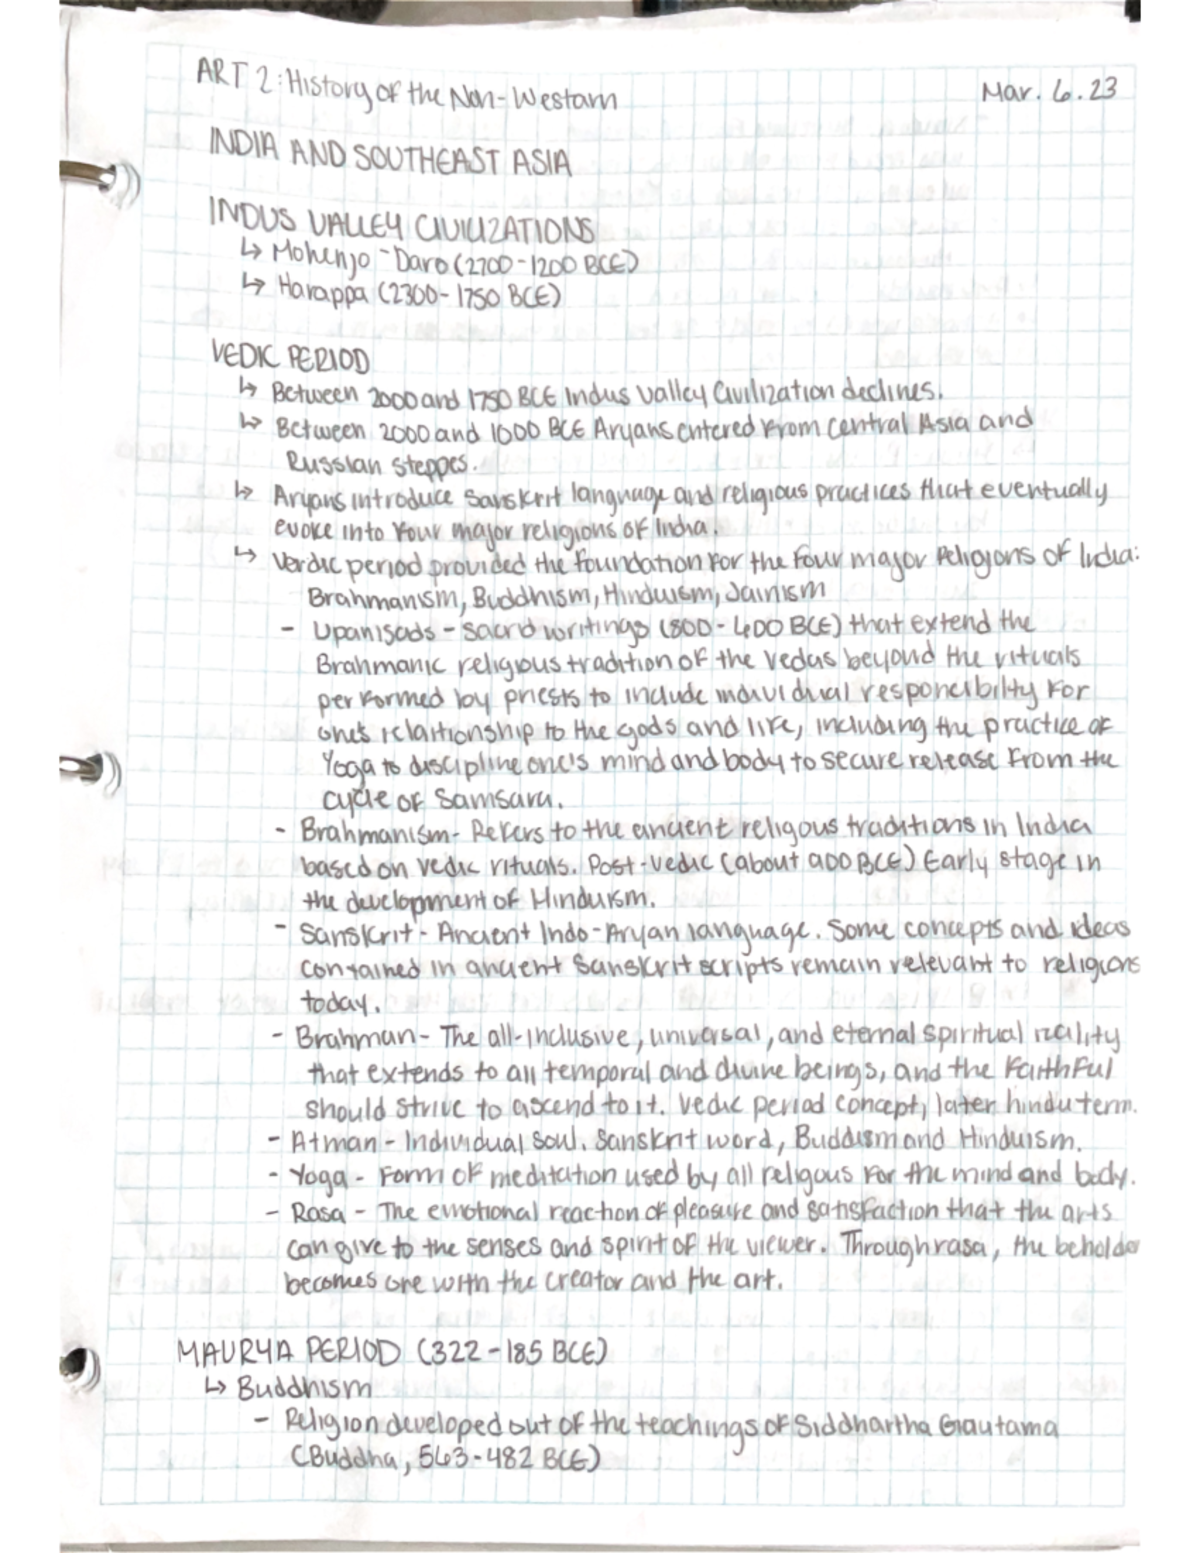 ART 2: History of the Non-Western
Mar. 6. 23
INDIA AND SOUTHEAST ASIA
INDUS VALLEY CIVILIZATIONS
↳ Mohenjo-Daro (2700-1200 BCE)
↳ Harappa (2300-1750 BCE)
VEDIC PERIOD
↳ Between 2000 and 1750 BCE Indus Valley Civilization declines.
↳ Between 2000 and 1000 BCE Aryans entered from central Asia and
Russian steppes.
↳ Aryans introduce Sanskrit language and religious practices that eventually
evoke into four major religions of India.
↳ Verdic period provided the foundation for the four major religions of India:
Brahmanism, Buddhism, Hinduism, Jainism
- Upanisads - sacrd writings (800-600 BCE) that extend the
Brahmanic religious tradition of the vedas beyond the rituals
performed by priests to include individual responcibilty for
one's relaitionship to the gods and life, including the practice of
Yoga to discipline one's mind and body to secure release from the
cycle of Samsara.
- Brahmanism- Refers to the ancient religous traditions in India
based on vedic rituals. Post-vedic (about 900 BCE) Early stage in
the development of Hinduism.
- Sanskrit - Ancient Indo-Aryan language. Some concepts and ideas
contained in ancient Sanskrit scripts remain relevant to religions
today.
- Brahman- The all-inclusive, universal, and eternal spiritual reality
that extends to all temporal and divine beings, and the faithful
should strive to ascend to it. Vedic period concept, later hindu term.
- Atman - Individual soul. Sanskrit word, Buddism and Hinduism.
- Yoga - Form of meditation used by all religous for the mind and body.
- Rasa - The emotional reaction of pleasure and satisfaction that the arts
can give to the senses and spirit of the viewer. Through rasa, the beholder
becomes one with the creator and the art.
MAURYA PERIOD (322-185 BCE)
↳ Buddhism
- Religion developed out of the teachings of Siddhartha Gautama
(Buddha, 563-482 BCE)